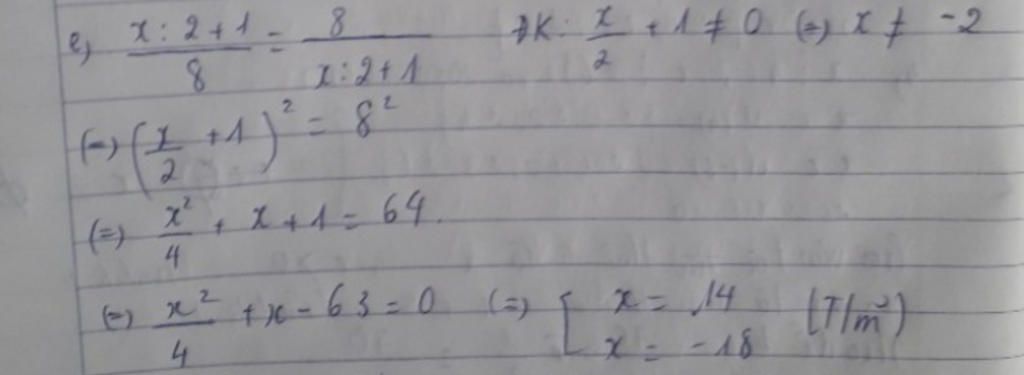 e) (x : 2 + 1)/8 = 8/(x : 2 + 1) ĐK: x/2 + 1 ≠ 0 (=) x ≠ -2
(=) (x/2 + 1)² = 8²
(=) x²/4 + x + 1 = 64.
(=) x²/4 + x - 63 = 0 (=) [ x = 14 (T/m)
x = -18